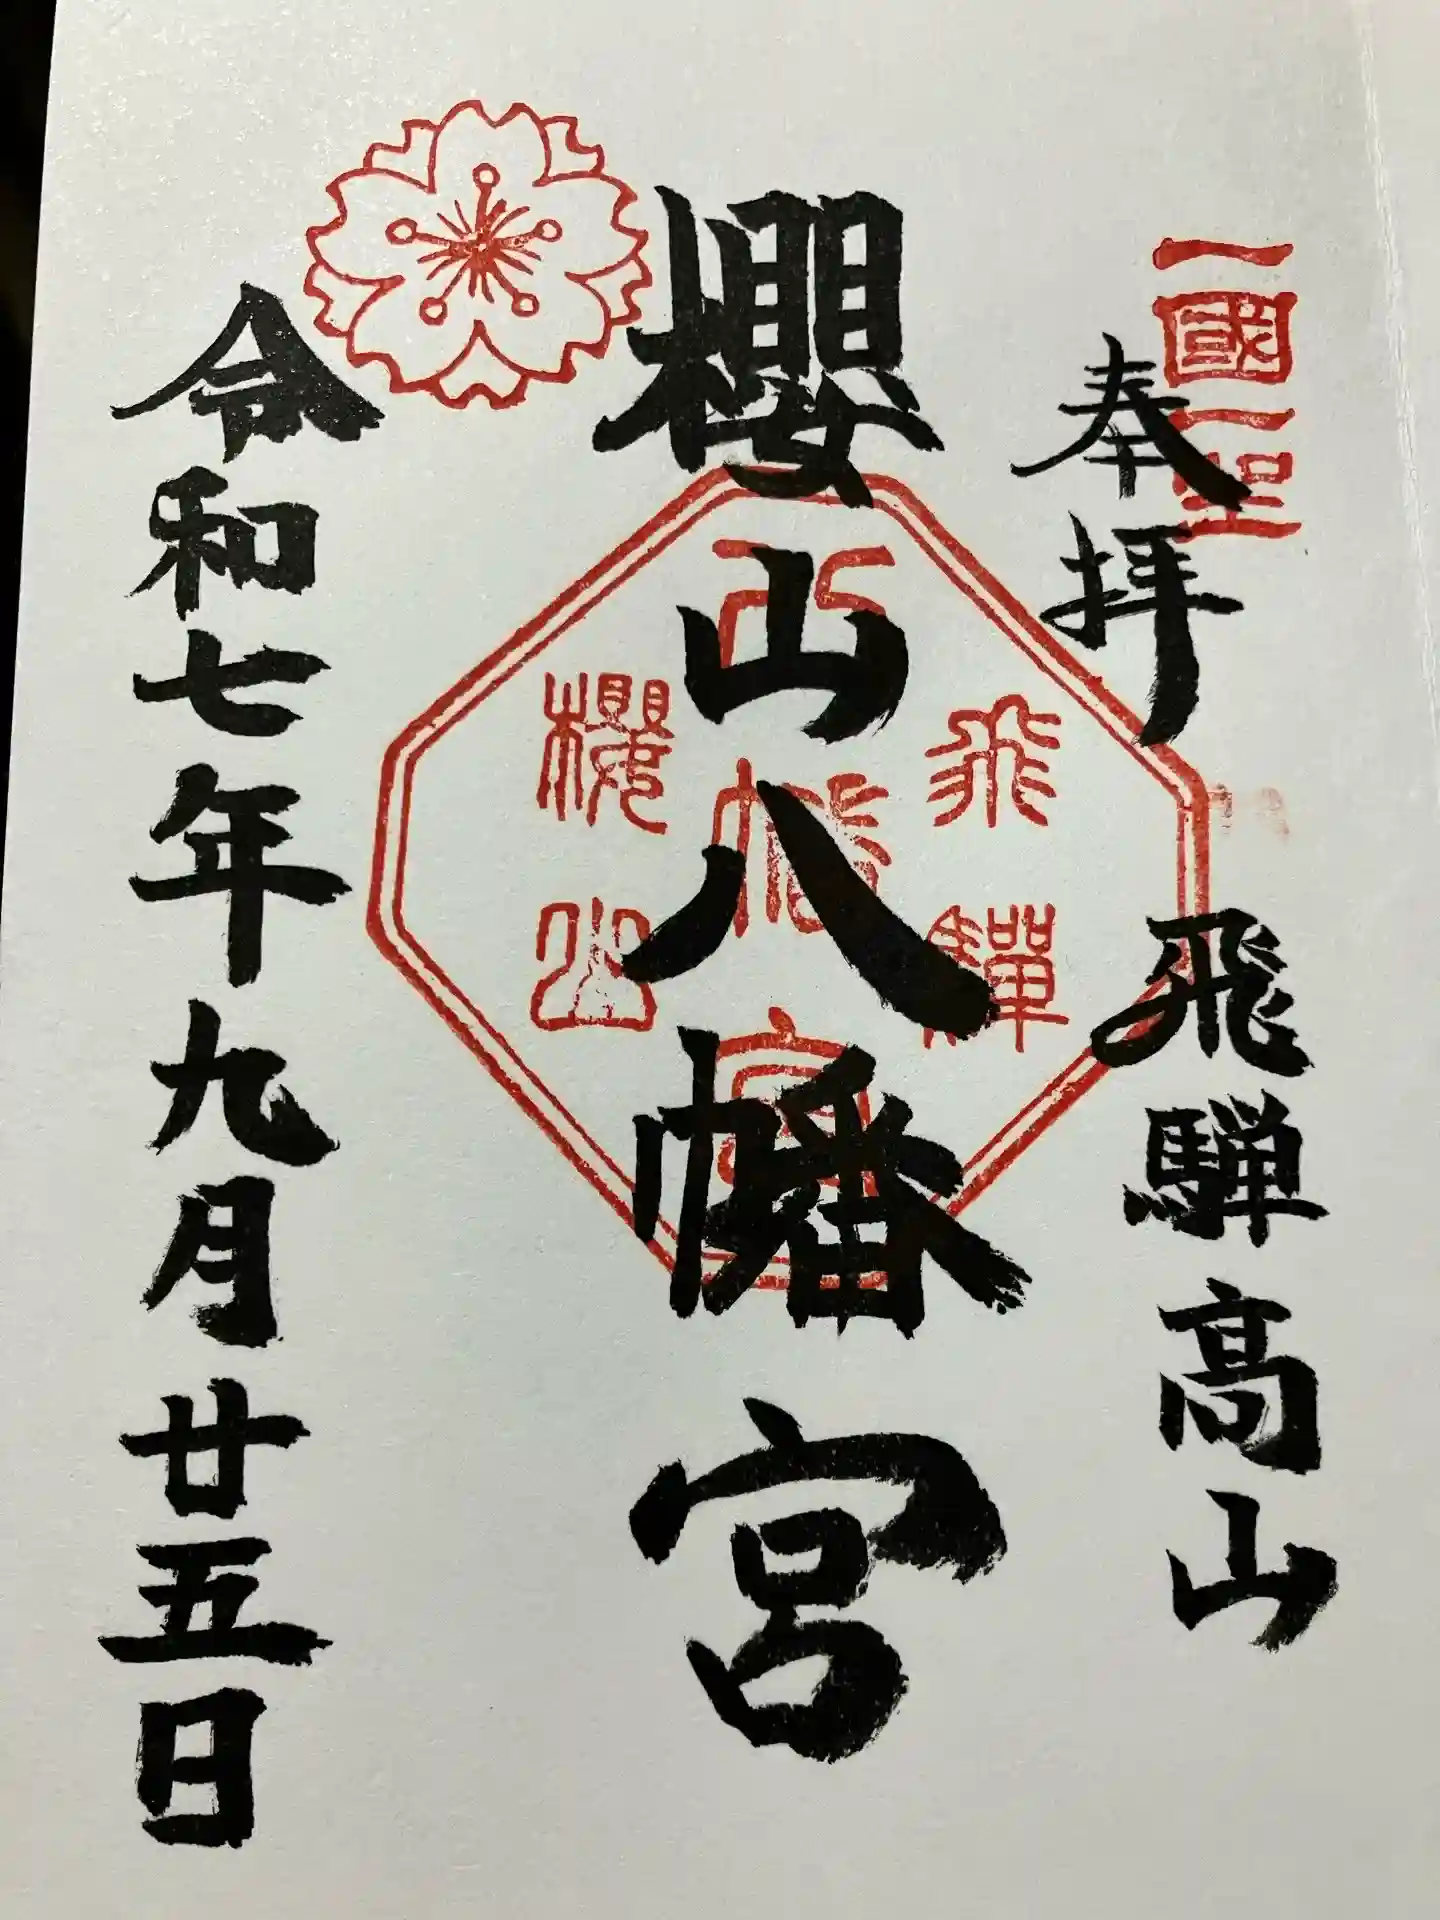 一國一
奉拝
飛騨高山
櫻山八幡宮
飛驒
八幡宮
櫻山
令和七年九月廿五日